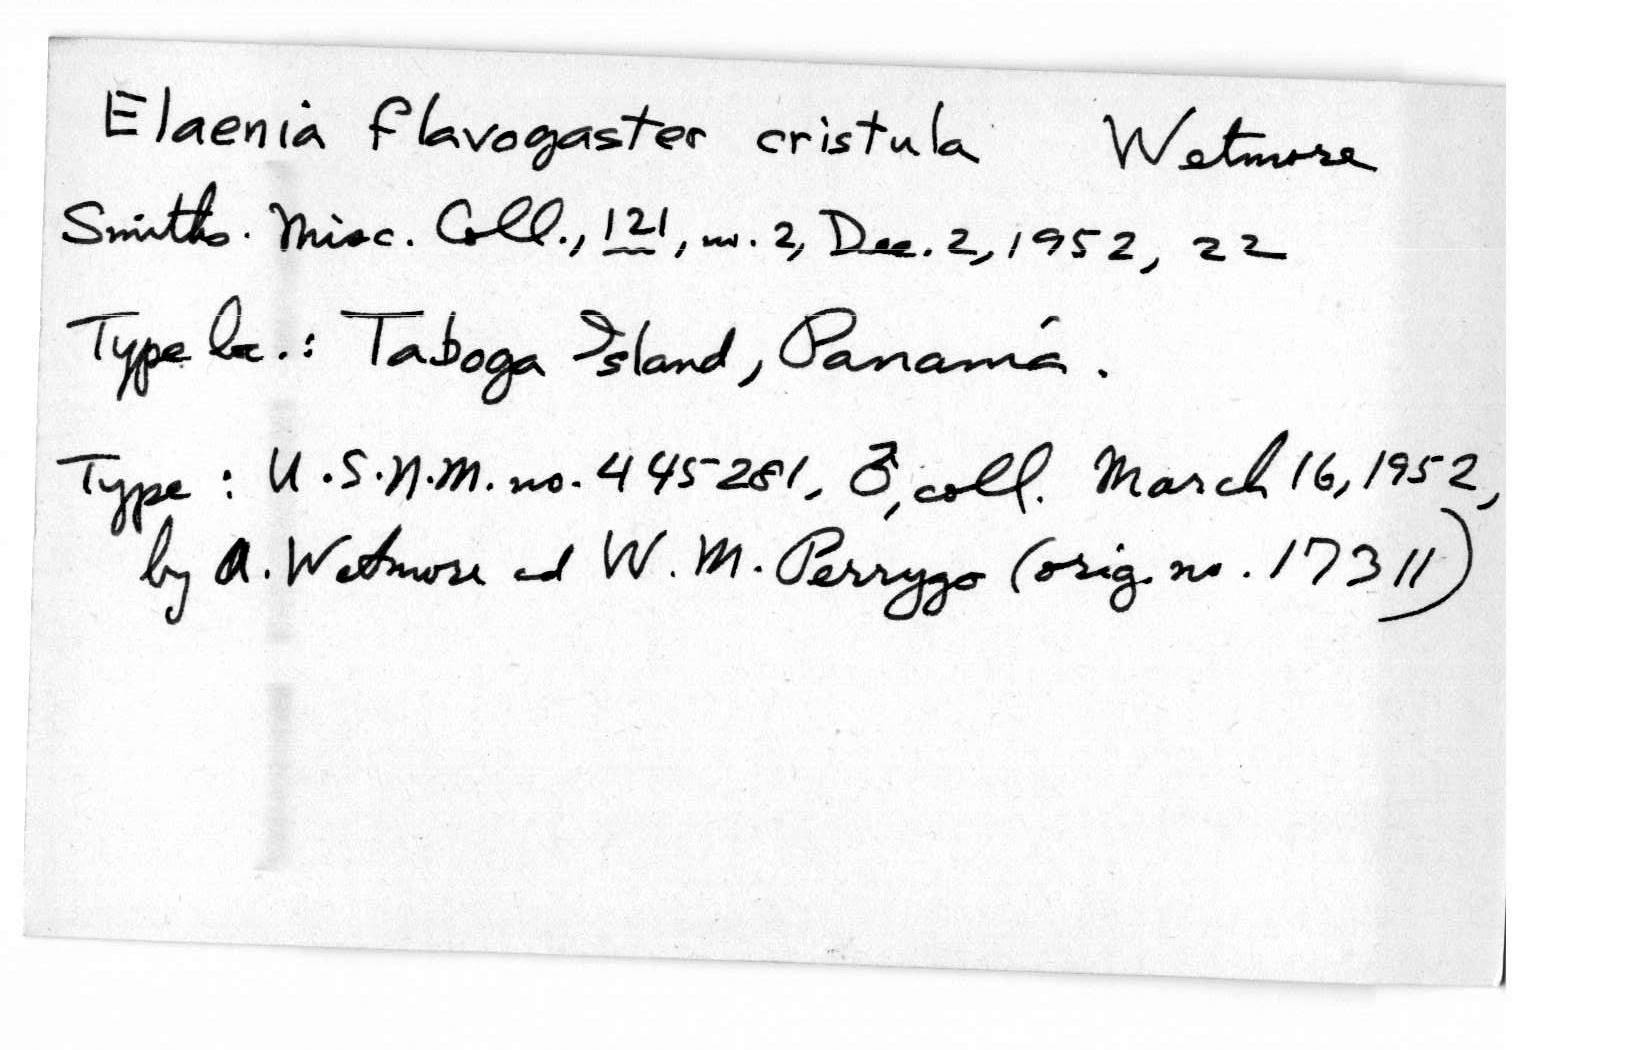 Elaenia flavogaster cristula Wetmore
Smiths. Misc. Coll., 121, no. 2, Dec. 2, 1952, 22
Type loc.: Taboga Island, Panamá.
Type: U.S.N.M. no. 445281, ♂, coll. March 16, 1952,
by A. Wetmore and W. M. Perrygo (orig. no. 17311)